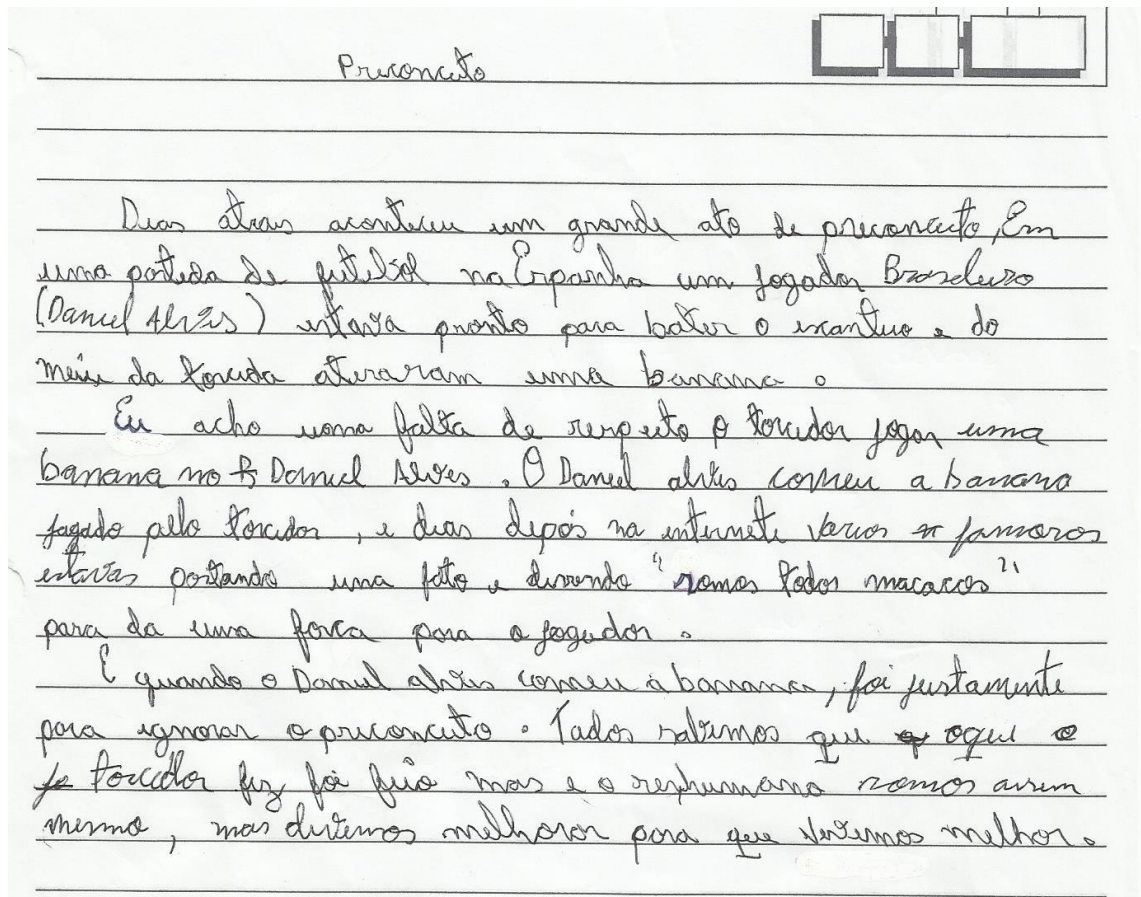 Preconceito
Dias atras aconteceu um grande ato de preconceito, Em
uma partida de futebol na Espanha um jogador Brasileiro
(Daniel Alves) estava pronto para bater o escanteio e do
meio da torcida atiraram uma banana.
Eu acho uma falta de respeito o torcedor jogar uma
banana no Daniel Alves. O Daniel alves comeu a banana
jogado pelo torcedor, e dias depós na internete varios famosos
estavas postando uma foto e dizendo "somos todos macacos"
para da uma forca para o jogador.
E quando o Daniel alves comeu a banana, foi justamente
para ignorar o preconceito. Todos sabemos que oque o
torcedor fez foi feio mas e o serhumano somos assim
mesmo, mas devemos melhorar para que vivemos melhor.